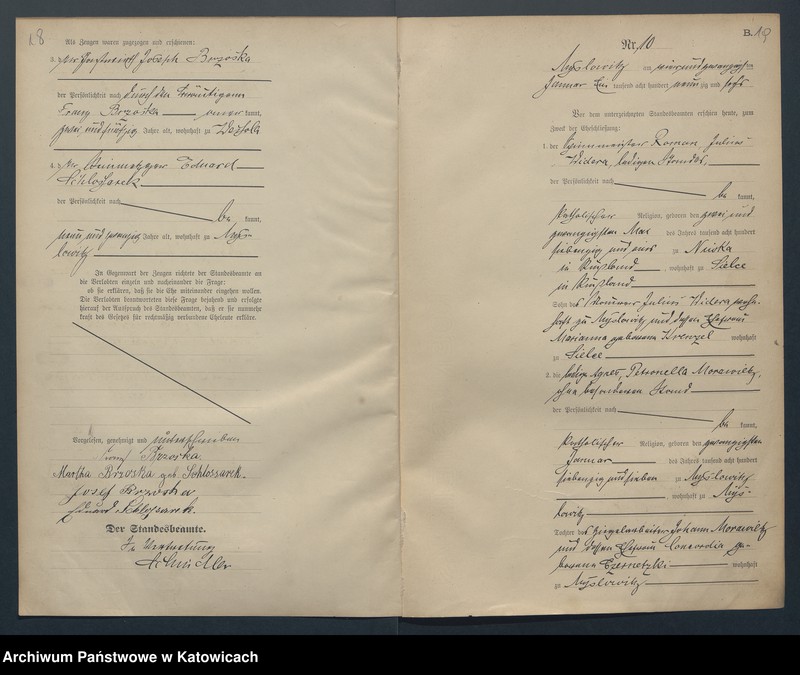 18
Als Zeugen waren zugezogen und erschienen:
3. der Gastwirth Joseph Brzoska
der Persönlichkeit nach durch den Bräutigam
Franz Brzoska anerkannt,
zwei und fünfzig Jahre alt, wohnhaft zu Wessola
4. der Steinmetzger Eduard
Schlossarek
der Persönlichkeit nach
be kannt,
neun und zwanzig Jahre alt, wohnhaft zu Myslo-
lowitz
In Gegenwart der Zeugen richtete der Standesbeamte an
die Verlobten einzeln und nacheinander die Frage:
ob sie erklären, daß sie die Ehe miteinander eingehen wollen.
Die Verlobten beantworteten diese Frage bejahend und erfolgte
hierauf der Ausspruch des Standesbeamten, daß er sie nunmehr
kraft des Gesetzes für rechtmäßig verbundene Eheleute erkläre.
Vorgelesen, genehmigt und unterschrieben
Franz Brzoska
Martha Brzoska geb. Schlossarek.
Josef Brzoska
Eduard Schlossarek.
Der Standesbeamte.
In Vertretung
B. 19
Nr. 10
Myslowitz am vierundzwanzigsten
Januar Ein tausend acht hundert neunzig und sechs
Vor dem unterzeichneten Standesbeamten erschien heute, zum
Zweck der Eheschließung:
1. der Roman, Julius
Widera, ledigen Standes,
der Persönlichkeit nach
be kannt,
katholischer Religion, geboren den zwei und
zwanzigsten Mai des Jahres tausend acht hundert
siebenzig und eins zu Niwka
in Rußland, wohnhaft zu Sielce
in Rußland
Sohn des Julius Widera wohn-
haft zu Myslowitz und dessen Ehefrau
Marianna geborenen Krenzel wohnhaft
zu Sielce
2. die ledige Agnes, Petronella Morawietz,
ohne besonderen Stand
der Persönlichkeit nach
be kannt,
katholischer Religion, geboren den zwanzigsten
Januar des Jahres tausend acht hundert
siebenzig und sieben zu Myslowitz
, wohnhaft zu Mys-
lowitz
Tochter des Ziegelarbeiter Johann Morawietz
und dessen Ehefrau Concordia ge-
borene Czernetzki wohnhaft
zu Myslowitz
Archiwum Państwowe w Katowicach